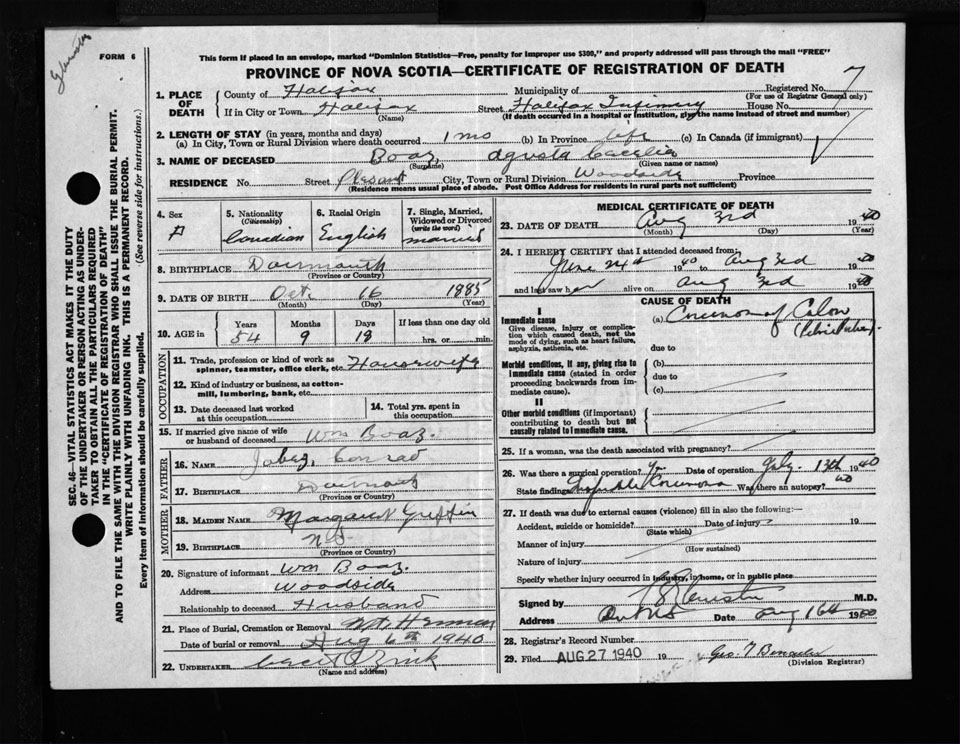 FORM 6
This form if placed in an envelope, marked "Dominion Statistics—Free, penalty for improper use $300," and properly addressed will pass through the mail "FREE"
PROVINCE OF NOVA SCOTIA—CERTIFICATE OF REGISTRATION OF DEATH
SEC. 46—VITAL STATISTICS ACT MAKES IT THE DUTY
OF THE UNDERTAKER OR PERSON ACTING AS UNDER-
TAKER TO OBTAIN ALL THE PARTICULARS REQUIRED
IN THE "CERTIFICATE OF REGISTRATION OF DEATH"
AND TO FILE THE SAME WITH THE DIVISION REGISTRAR WHO SHALL ISSUE THE BURIAL PERMIT.
WRITE PLAINLY WITH UNFADING INK. THIS IS A PERMANENT RECORD.
Every item of Information should be carefully supplied. (See reverse side for instructions.)
1. PLACE OF DEATH County of Halifax Municipality of Registered No. 7
(For use of Registrar General only)
If in City or Town Halifax Street Halifax Infirmary House No.
(Name) (If death occurred in a hospital or institution, give the name instead of street and number)
2. LENGTH OF STAY (in years, months and days)
(a) In City, Town or Rural Division where death occurred 1 mo (b) In Province life (c) In Canada (if immigrant)
3. NAME OF DECEASED Boaz, Agusta Cacelia
(Surname) (Given name or names)
RESIDENCE No. Street Plesant City, Town or Rural Division Woodside Province
(Residence means usual place of abode. Post Office Address for residents in rural parts not sufficient)
4. Sex F
5. Nationality (Citizenship) Canadian
6. Racial Origin English
7. Single, Married, Widowed or Divorced (write the word) married
8. BIRTHPLACE Dartmouth
(Province or Country)
9. DATE OF BIRTH Oct. 16 1885
(Month) (Day) (Year)
10. AGE in Years 54 Months 9 Days 18 If less than one day old hrs. or min.
OCCUPATION
11. Trade, profession or kind of work as spinner, teamster, office clerk, etc. Housewife
12. Kind of industry or business, as cotton-mill, lumbering, bank, etc.
13. Date deceased last worked at this occupation
14. Total yrs. spent in this occupation
15. If married give name of wife or husband of deceased Wm Boaz.
FATHER
16. NAME Jabez, Conrad
17. BIRTHPLACE Dartmouth
(Province or Country)
MOTHER
18. MAIDEN NAME Margaret Griffin
19. BIRTHPLACE NS
(Province or Country)
20. Signature of informant Wm Boaz.
Address Woodside
Relationship to deceased Husband
21. Place of Burial, Cremation or Removal Mt. Hermon
Date of burial or removal Aug 6th 1940
22. UNDERTAKER
(Name and address)
MEDICAL CERTIFICATE OF DEATH
23. DATE OF DEATH Aug 3rd 1940
(Month) (Day) (Year)
24. I HEREBY CERTIFY that I attended deceased from:
June 24th 1940 to Aug 3rd 1940
and last saw her alive on Aug 3rd 1940
CAUSE OF DEATH
I
Immediate cause
Give disease, injury or complication which caused death, not the mode of dying, such as heart failure, asphyxia, asthenia, etc.
(a) Carcinoma of Colon
due to
Morbid conditions, if any, giving rise to immediate cause (stated in order proceeding backwards from immediate cause).
(b)
due to
(c)
II
Other morbid conditions (if important) contributing to death but not causally related to immediate cause.
25. If a woman, was the death associated with pregnancy?
26. Was there a surgical operation? Yes Date of operation July. 13th 1940
State findings Carcinoma Was there an autopsy? no
27. If death was due to external causes (violence) fill in also the following:—
Accident, suicide or homicide? Date of injury 19
(State which)
Manner of injury
(How sustained)
Nature of injury
Specify whether injury occurred in industry, in home, or in public place
Signed by M.D.
Address Date Aug 16th 1940
28. Registrar's Record Number
29. Filed AUG 27 1940 19
(Division Registrar)